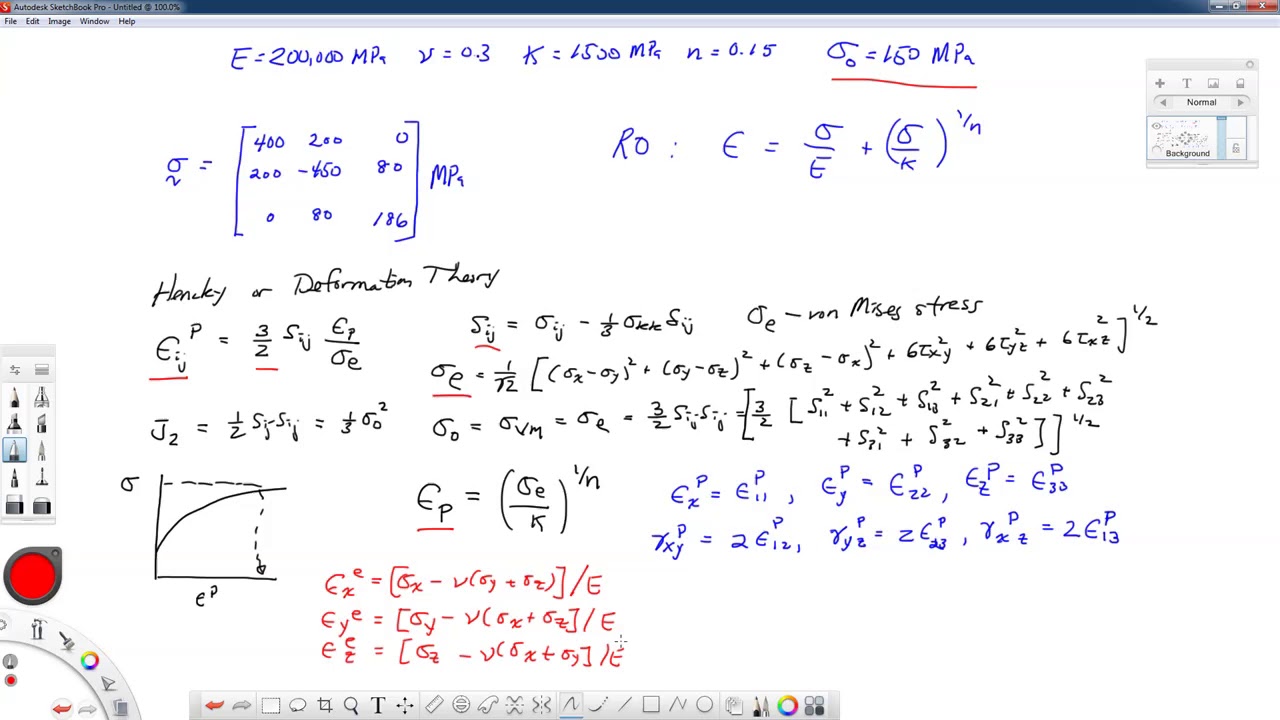 Autodesk SketchBook Pro - Untitled @ 100.0%
File Edit Image Window Help
E = 200,000 MPa ν = 0.3 K = 1500 MPa n = 0.15 σ₀ = 150 MPa
Normal
Background
RO : ϵ = σ/E + (σ/K)^1/n
σ = [400 200 0
200 -450 80
0 80 186] MPa
Hencky or Deformation Theory
ϵij^P = 3/2 Sij ϵp/σe
Sij = σij - 1/3 σkk δij
σe - von Mises stress
σe = 1/√2 [(σx - σy)² + (σy - σz)² + (σz - σx)² + 6τxy² + 6τyz² + 6τxz²]^1/2
J₂ = 1/2 Sij Sij = 1/3 σ₀²
σ₀ = σVM = σe = 3/2 Sij Sij = [3/2 [S₁₁² + S₁₂² + S₁₃² + S₂₁² + S₂₂² + S₂₃²
+ S₃₁² + S₃₂² + S₃₃²]]^1/2
σ
ϵ^P
ϵp = (σe/K)^1/n
ϵx^P = ϵ₁₁^P , ϵy^P = ϵ₂₂^P , ϵz^P = ϵ₃₃^P
γxy^P = 2ϵ₁₂^P , γyz^P = 2ϵ₂₃^P , γxz^P = 2ϵ₁₃^P
ϵx^e = [σx - ν(σy + σz)]/E
ϵy^e = [σy - ν(σx + σz]/E
ϵz^e = [σz - ν(σx + σy]/E